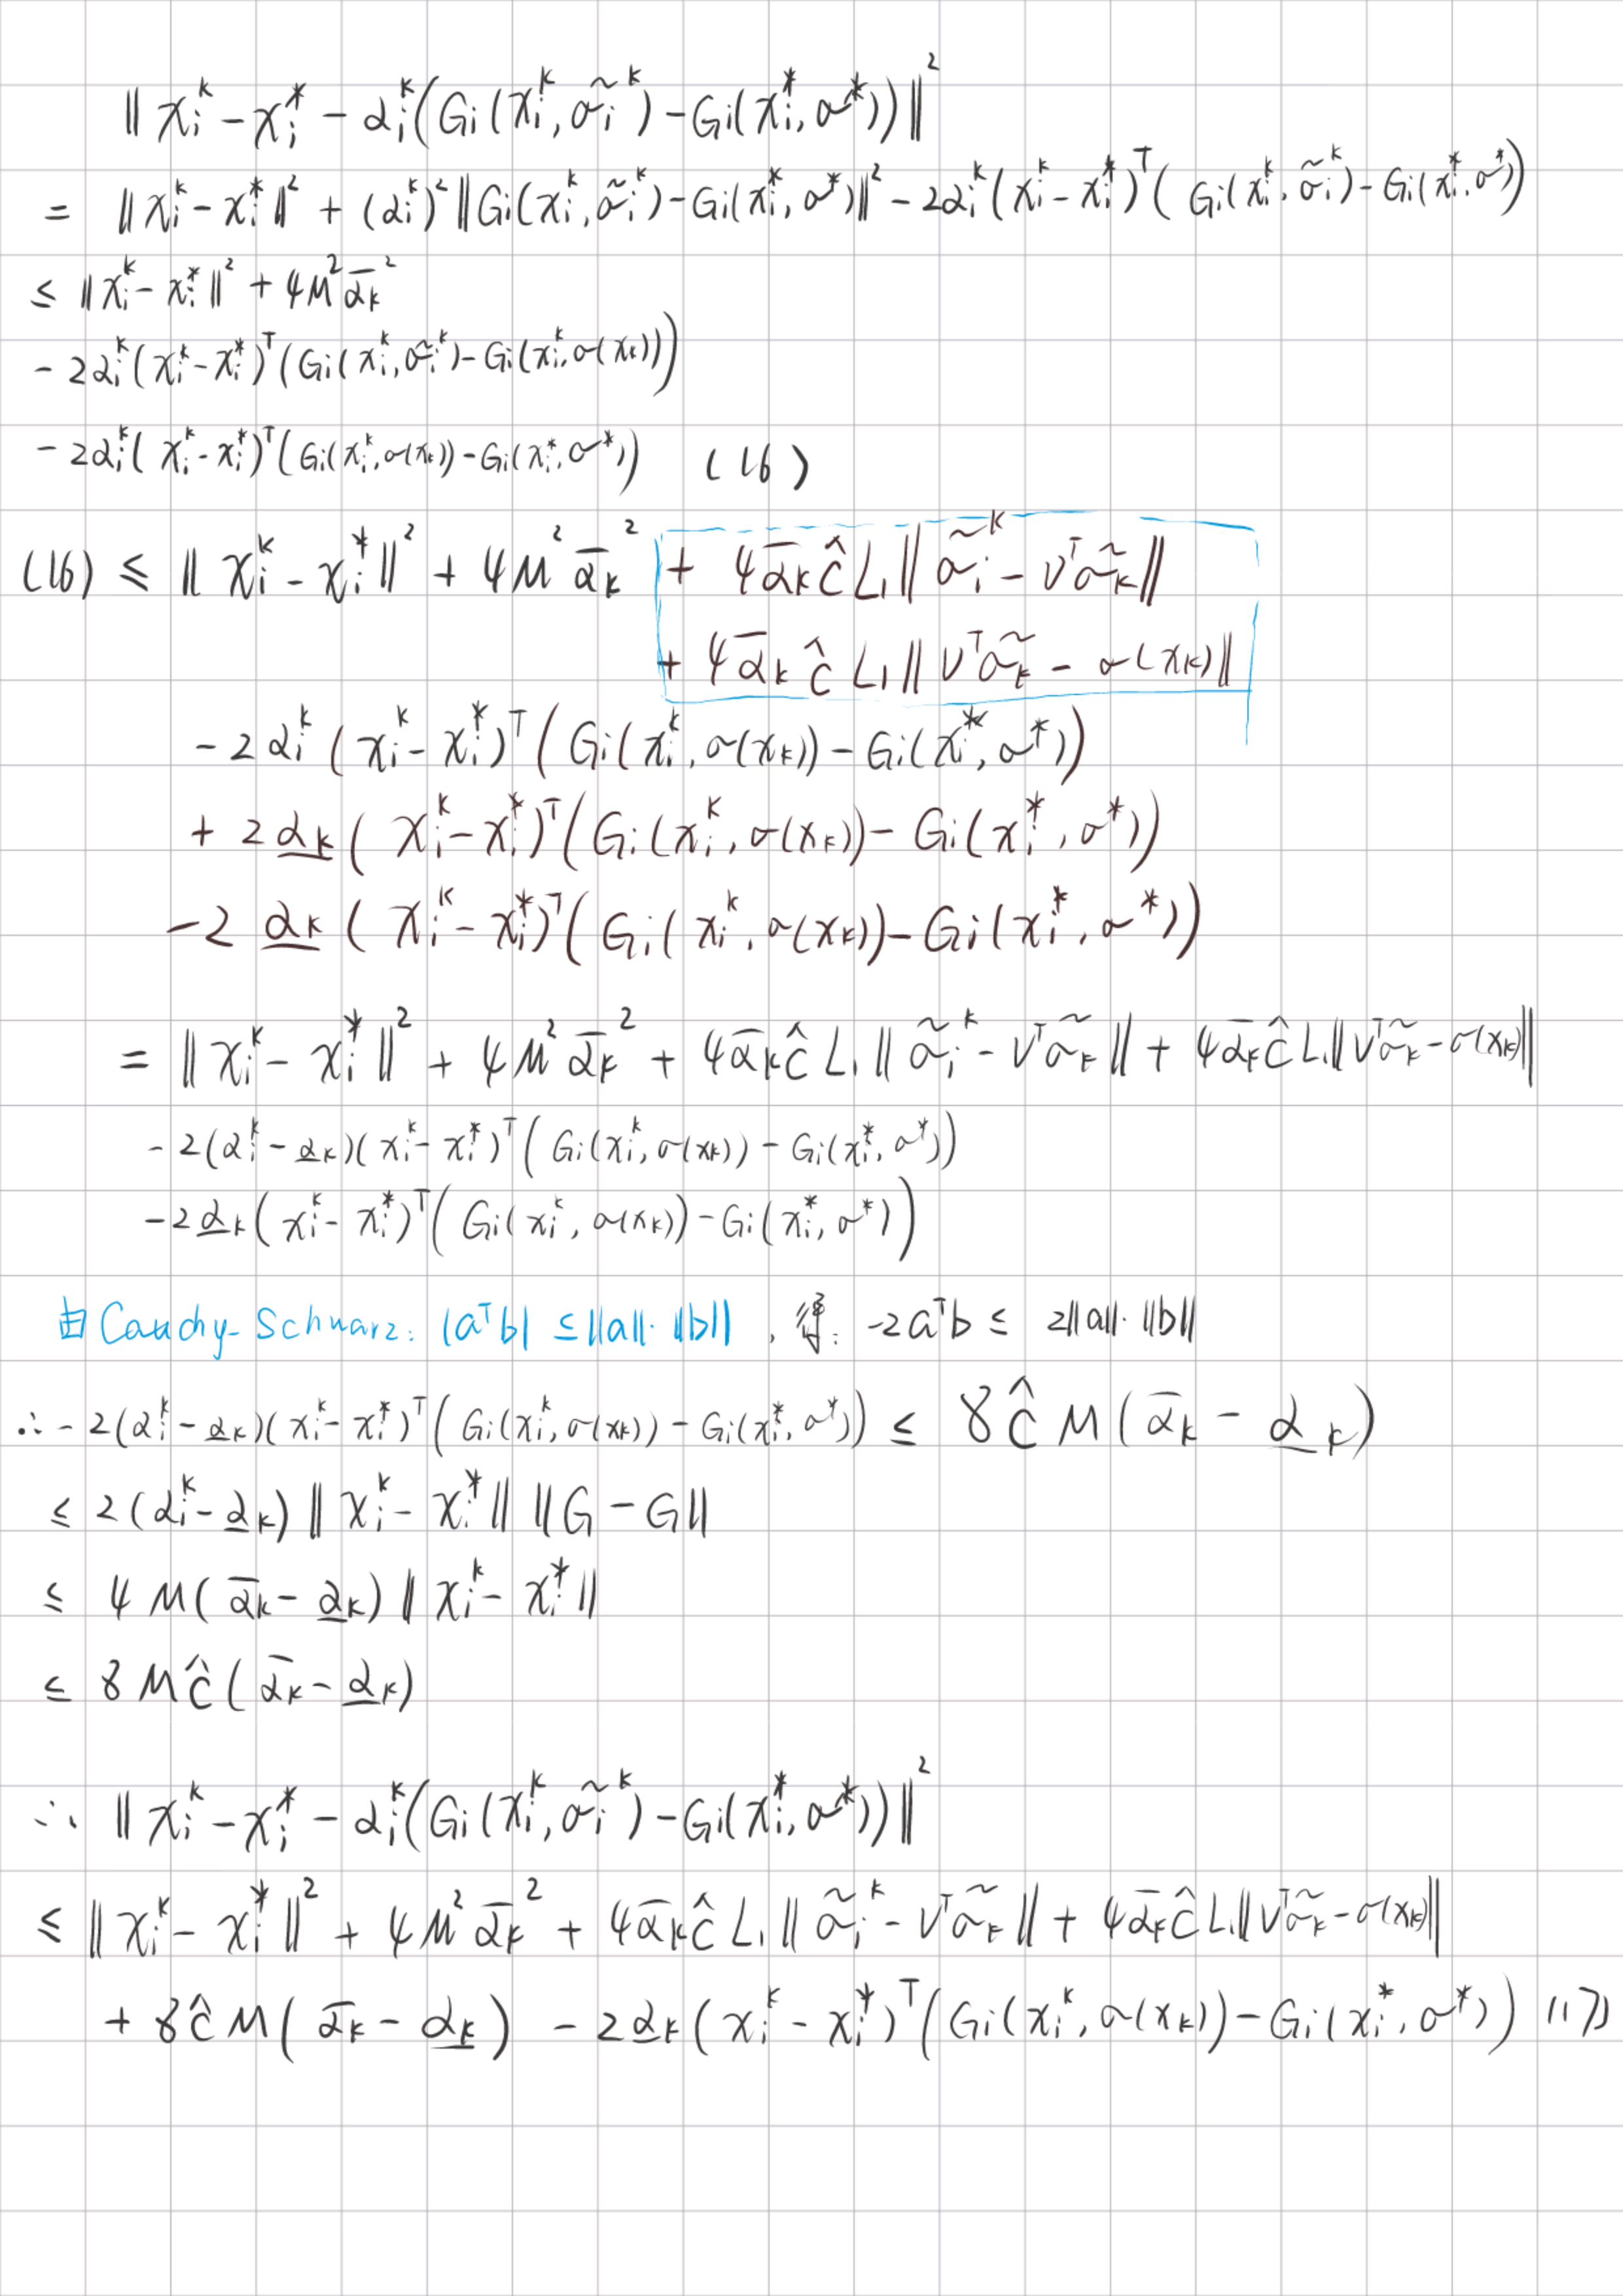 ‖x_i^k − x_i^* − α_i^k(G_i(x_i^k, σ̃_i^k) − G_i(x_i^*, σ^*))‖²
= ‖x_i^k − x_i^*‖² + (α_i^k)²‖G_i(x_i^k, σ̃_i^k) − G_i(x_i^*, σ^*)‖² − 2α_i^k(x_i^k − x_i^*)^T(G_i(x_i^k, σ̃_i^k) − G_i(x_i^*, σ^*))
≤ ‖x_i^k − x_i^*‖² + 4M²ᾱ_k²
− 2α_i^k(x_i^k − x_i^*)^T(G_i(x_i^k, σ̃_i^k) − G_i(x_i^k, σ(x_k)))
− 2α_i^k(x_i^k − x_i^*)^T(G_i(x_i^k, σ(x_k)) − G_i(x_i^*, σ^*)) (16)
(16) ≤ ‖x_i^k − x_i^*‖² + 4M²ᾱ_k² + 4ᾱ_kĉL₁‖σ̃_i^k − v^Tσ̃_k‖
+ 4ᾱ_kĉL₁‖v^Tσ̃_k − σ(x_k)‖
− 2α_i^k(x_i^k − x_i^*)^T(G_i(x_i^k, σ(x_k)) − G_i(x_i^*, σ^*))
+ 2α̲_k(x_i^k − x_i^*)^T(G_i(x_i^k, σ(x_k)) − G_i(x_i^*, σ^*))
− 2α̲_k(x_i^k − x_i^*)^T(G_i(x_i^k, σ(x_k)) − G_i(x_i^*, σ^*))
= ‖x_i^k − x_i^*‖² + 4M²ᾱ_k² + 4ᾱ_kĉL₁‖σ̃_i^k − v^Tσ̃_k‖ + 4ᾱ_kĉL₁‖v^Tσ̃_k − σ(x_k)‖
− 2(α_i^k − α̲_k)(x_i^k − x_i^*)^T(G_i(x_i^k, σ(x_k)) − G_i(x_i^*, σ^*))
− 2α̲_k(x_i^k − x_i^*)^T(G_i(x_i^k, σ(x_k)) − G_i(x_i^*, σ^*))
由 Cauchy-Schwarz: |a^Tb| ≤ ‖a‖·‖b‖, 得: −2a^Tb ≤ 2‖a‖·‖b‖
∴ −2(α_i^k − α̲_k)(x_i^k − x_i^*)^T(G_i(x_i^k, σ(x_k)) − G_i(x_i^*, σ^*)) ≤ 8ĉM(ᾱ_k − α̲_k)
≤ 2(α_i^k − α̲_k)‖x_i^k − x_i^*‖‖G − G‖
≤ 4M(ᾱ_k − α̲_k)‖x_i^k − x_i^*‖
≤ 8Mĉ(ᾱ_k − α̲_k)
∴ ‖x_i^k − x_i^* − α_i^k(G_i(x_i^k, σ̃_i^k) − G_i(x_i^*, σ^*))‖²
≤ ‖x_i^k − x_i^*‖² + 4M²ᾱ_k² + 4ᾱ_kĉL₁‖σ̃_i^k − v^Tσ̃_k‖ + 4ᾱ_kĉL₁‖v^Tσ̃_k − σ(x_k)‖
+ 8ĉM(ᾱ_k − α̲_k) − 2α̲_k(x_i^k − x_i^*)^T(G_i(x_i^k, σ(x_k)) − G_i(x_i^*, σ^*)) (17)